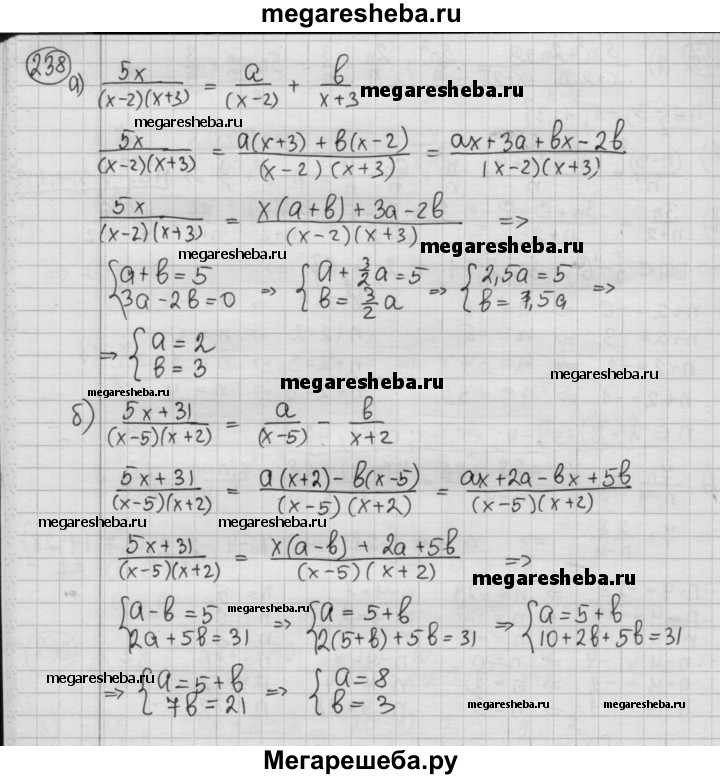 megaresheba.ru
238
а) 5x/((x-2)(x+3)) = a/(x-2) + b/(x+3) megaresheba.ru
megaresheba.ru
5x/((x-2)(x+3)) = (a(x+3) + b(x-2))/((x-2)(x+3)) = (ax + 3a + bx - 2b)/((x-2)(x+3))
5x/((x-2)(x+3)) = (x(a+b) + 3a - 2b)/((x-2)(x+3)) =>
megaresheba.ru megaresheba.ru
{a + b = 5; 3a - 2b = 0 => {a + 3/2 a = 5; b = 3/2 a => {2,5a = 5; b = 1,5a =>
=> {a = 2; b = 3
megaresheba.ru megaresheba.ru megaresheba.ru
б) (5x + 31)/((x-5)(x+2)) = a/(x-5) - b/(x+2)
(5x + 31)/((x-5)(x+2)) = (a(x+2) - b(x-5))/((x-5)(x+2)) = (ax + 2a - bx + 5b)/((x-5)(x+2))
megaresheba.ru megaresheba.ru
(5x + 31)/((x-5)(x+2)) = (x(a-b) + 2a + 5b)/((x-5)(x+2)) =>
megaresheba.ru
{a - b = 5; 2a + 5b = 31 megaresheba.ru => {a = 5 + b; 2(5+b) + 5b = 31 => {a = 5 + b; 10 + 2b + 5b = 31
megaresheba.ru megaresheba.ru megaresheba.ru
=> {a = 5 + b; 7b = 21 => {a = 8; b = 3
Мегарешеба.ру